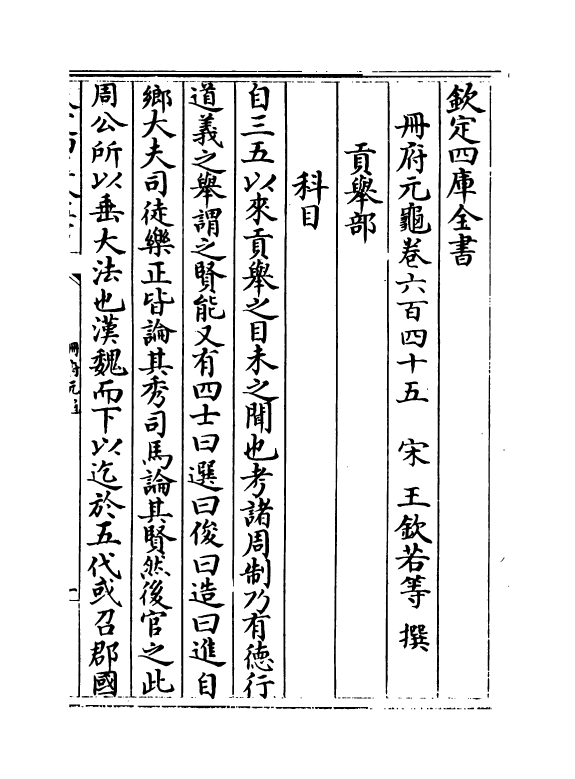 欽定四庫全書
冊府元龜卷六百四十五　宋　王欽若等　撰
貢舉部
科目
自三五以來貢舉之目未之聞也考諸周制乃有德行
道義之舉謂之賢能又有四士曰選曰俊曰造曰進自
鄉大夫司徒樂正皆論其秀司馬論其賢然後官之此
周公所以垂大法也漢魏而下以迄於五代或召郡國
冊府元